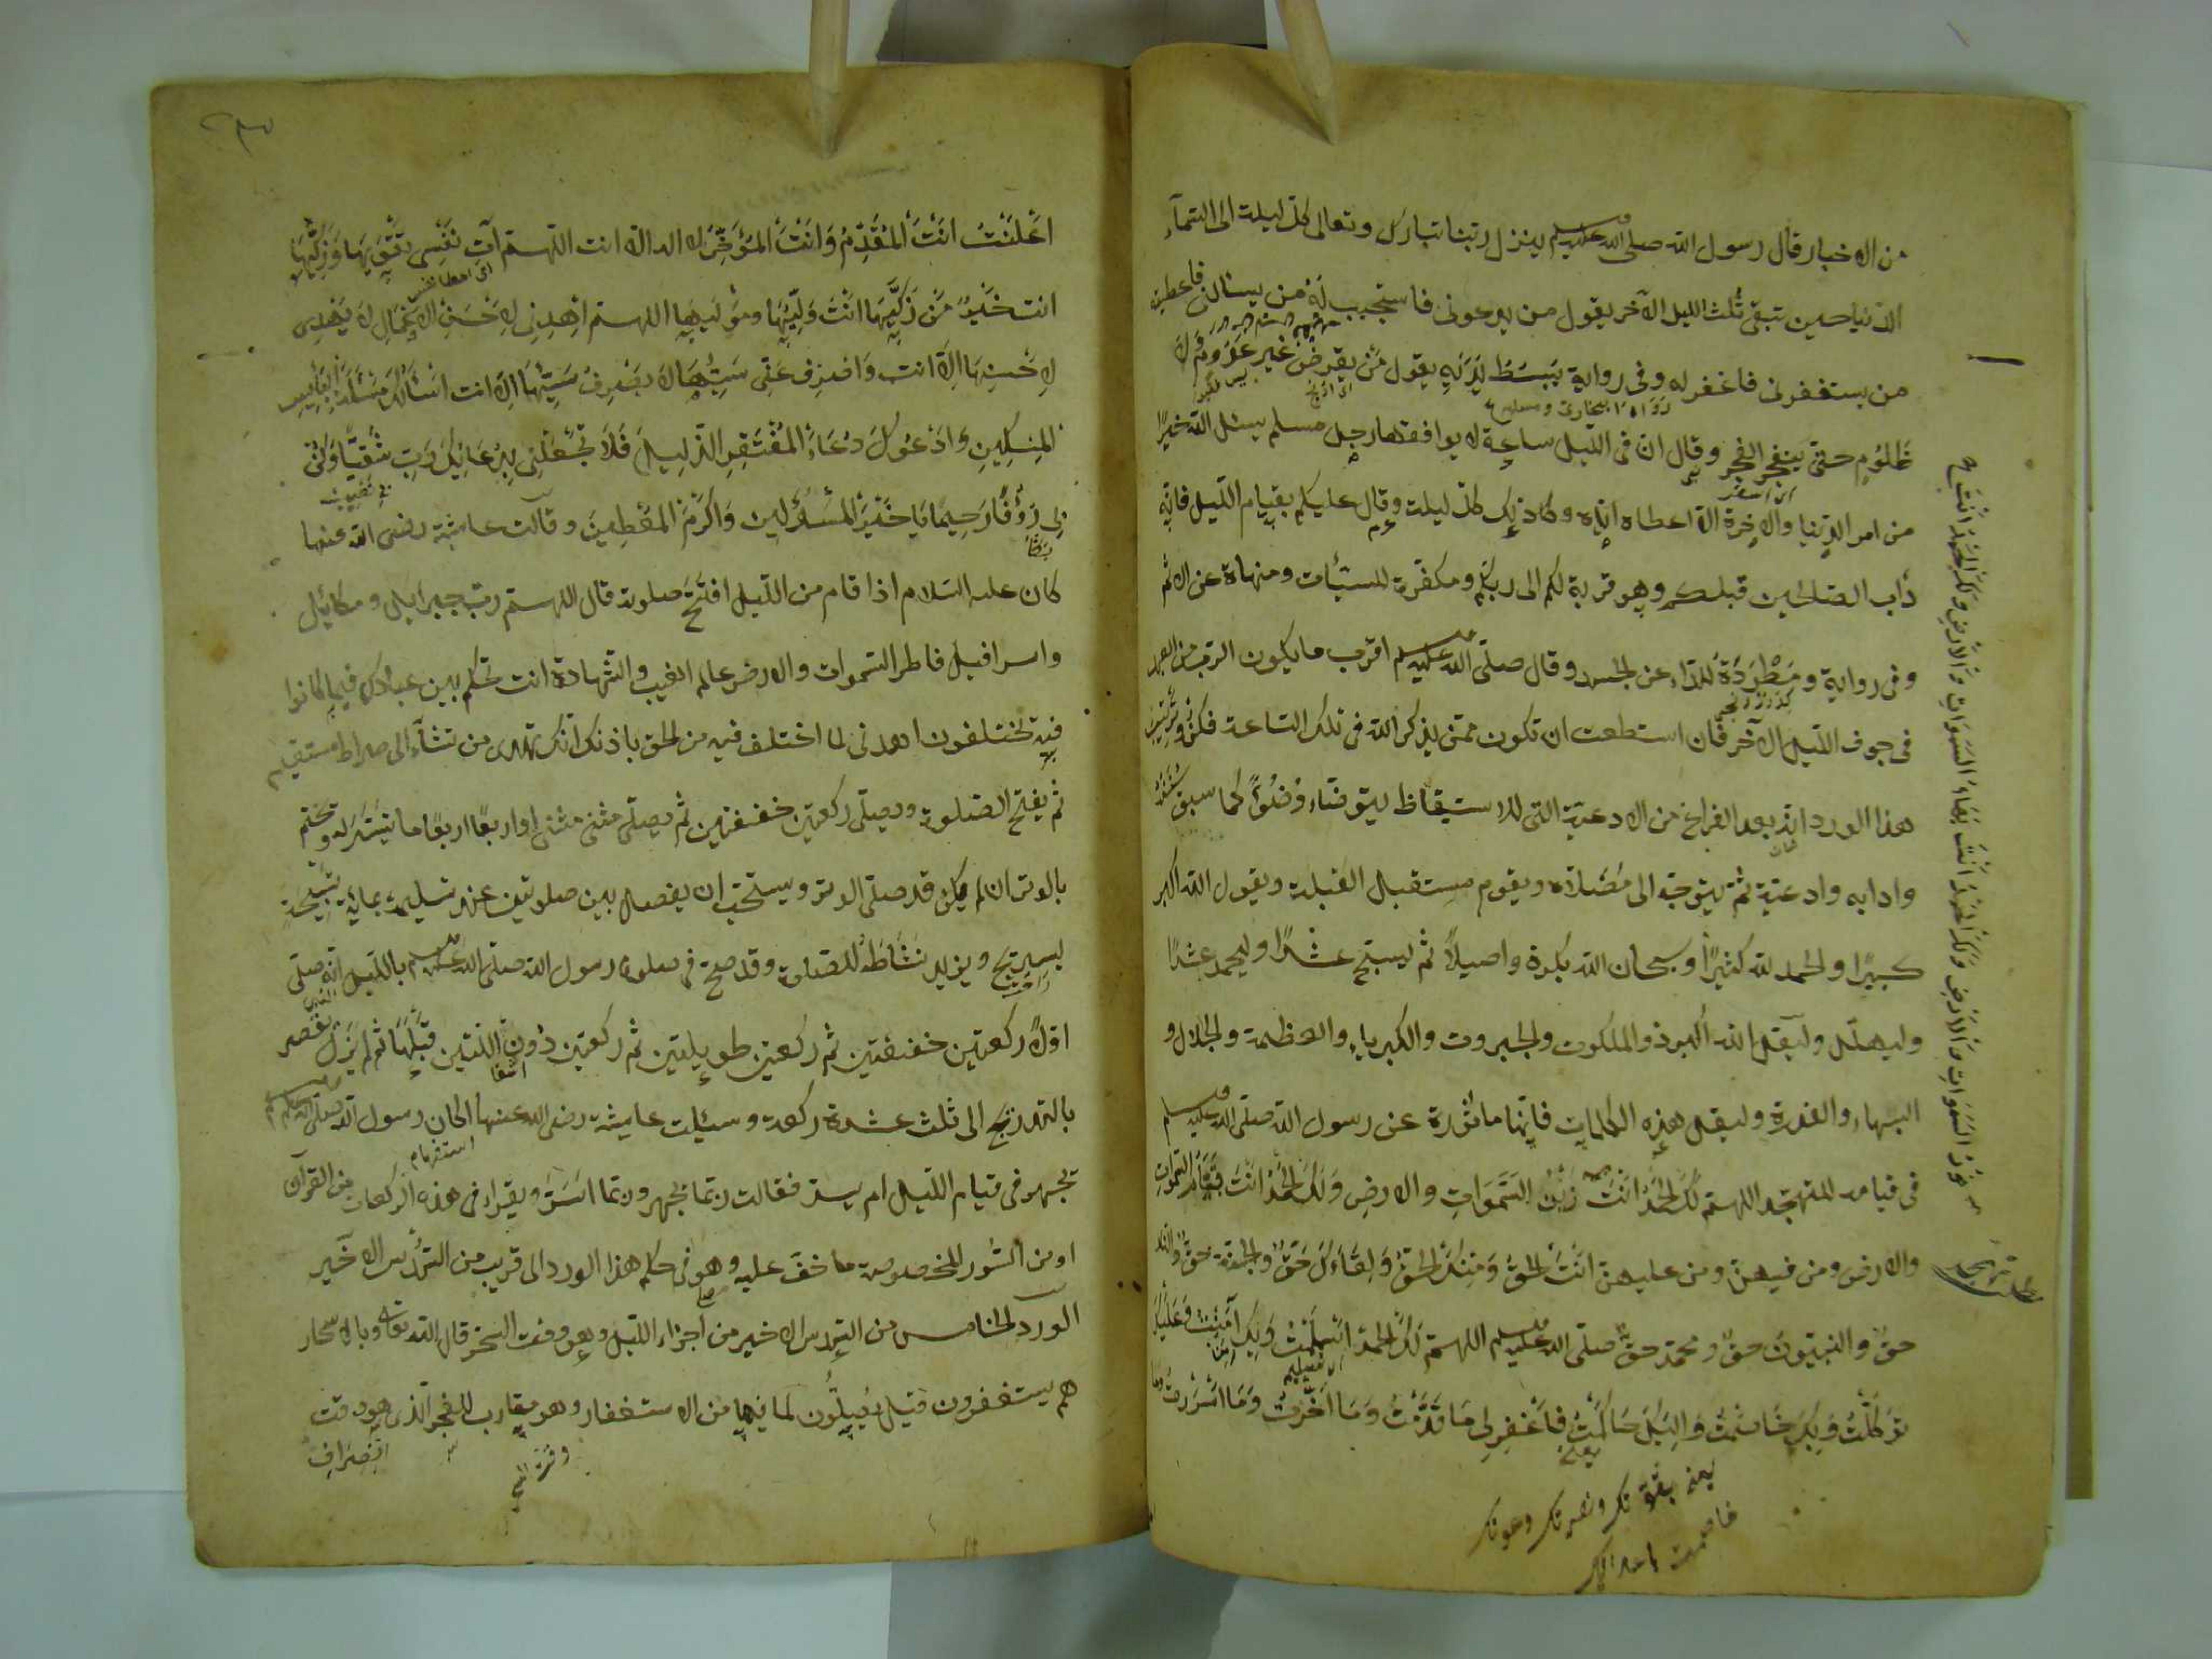 من الاخبار قال رسول الله صلى الله عليه وسلم ينزل ربنا تبارك وتعالى كل ليلة الى السماء
الدنيا حين تبقى ثلث الليل الآخر يقول من يدعونى فاستجيب له من يسالنى فاعطيه
من يستغفرنى فاغفر له وفى رواية يبسط يديه يقول من يقرض غير عدوم ولا
رواه بخارى ومسلم
ظلوم حتى ينفجر الفجر وقال ان فى الليل ساعة لا يوافقها رجل مسلم يسئل الله خيرا
من امر الدنيا والاخرة الا اعطاه اياه وكذلك كل ليلة وقال عليكم بقيام الليل فانه
دأب الصالحين قبلكم وهو قربة لكم الى ربكم ومكفرة للسيئات ومنهاة عن الاثم
وفى رواية ومطردة للداء عن الجسد وقال صلى الله عليه وسلم اقرب ما يكون الرب من العبد
فى جوف الليل الآخر فان استطعت ان تكون ممن يذكر الله فى تلك الساعة فكن وترتيب
هذا الورد انه بعد الفراغ من الادعية التى للاستيقاظ يتوضاء وضوءا كما سبق سننه
وادابه وادعيته ثم يتوجه الى مصلاه ويقوم مستقبل القبلة ويقول الله اكبر
كبيرا والحمد لله كثيرا وسبحان الله بكرة واصيلا ثم ليسبح عشرا وليحمد عشرا
وليهلل وليقل الله اكبر ذو الملكوت والجبروت والكبرياء والعظمة والجلال و
البهاء والقدرة وليقل هذه الكلمات فانها ماثورة عن رسول الله صلى الله عليه وسلم
فى قيامه للتهجد اللهم لك الحمد انت زين السموات والارض ولك الحمد انت قيام السموات
والارض ومن فيهن ومن عليهن انت الحق ومنك الحق ولقاءك حق والجنة حق والنار
حق والنبيون حق ومحمد حق صلى الله عليه وسلم اللهم لك الحمد اسلمت وبك آمنت وعليك
توكلت وبك خاصمت واليك حاكمت فاغفر لى ما قدمت وما اخرت وما اسررت وما
يعنى بقوتك ونصرتك وعونك
خاصمت باعدائك
نور السموات والارض ولك الحمد انت بهاء السموات والارض ولك الحمد انت
اعلنت انت المقدم وانت المؤخر لا اله الا انت اللهم آت نفسى تقويها وزكها
انت خير من زكيها انت وليها ومولىها اللهم اهدنى لاحسن الاعمال لا يهدى
لاحسنها الا انت واصرف عنى سيئها لا يصرف سيئها الا انت اسألك مسئلة البايس
المسكين وادعوك دعاء المفتقر الذليل فلا تجعلنى بدعائك رب شقيا وكن
لى رؤفا رحيما يا خير المسئولين واكرم المعطين وقالت عايشة رضى الله عنها
كان عليه السلام اذا قام من الليل افتتح صلوته قال اللهم رب جبرايل وميكائيل
واسرافيل فاطر السموات والارض عالم الغيب والشهادة انت تحكم بين عبادك فيما كانوا
فيه يختلفون اهدنى لما اختلف فيه من الحق باذنك انك تهدى من تشاء الى صراط مستقيم
ثم يفتح الصلوة ويصلى ركعتين خفيفتين ثم يصلى مثنى مثنى او اربعا اربعا ما تيسر له ويختم
بالوتر ان لم يكن قد صلى الوتر ويستحب ان يفصل بين صلوتين عند تسليمه بماية تسبيحة
ليستريح ويزيد نشاطه للصلوة وقد صح فى صلوة رسول الله صلى الله عليه وسلم بالليل انه صلى
اولا ركعتين خفيفتين ثم ركعتين طويلتين ثم ركعتين دون اللتين قبلهما ثم لم يزل يقصر
بالتدريج الى ثلث عشرة ركعة وسئلت عايشة رضى الله عنها اكان رسول الله صلى الله عليه وسلم
استفهام
يجهر فى قيام الليل ام يسر فقالت ربما جهر وربما اسر ويقراء فى هذه الركعات من القرآن
او من السور المخصوصة ما خف عليه وهو فى حكم هذا الورد الى قريب من السدس الاخير
الورد الخامس من السدس الاخير من اجزاء الليل وهو وقت السحر قال الله تعالى وبالاسحار
هم يستغفرون قيل يصلون لما فيها من الاستغفار وهو مقارب للفجر الذى هو وقت
انصراف